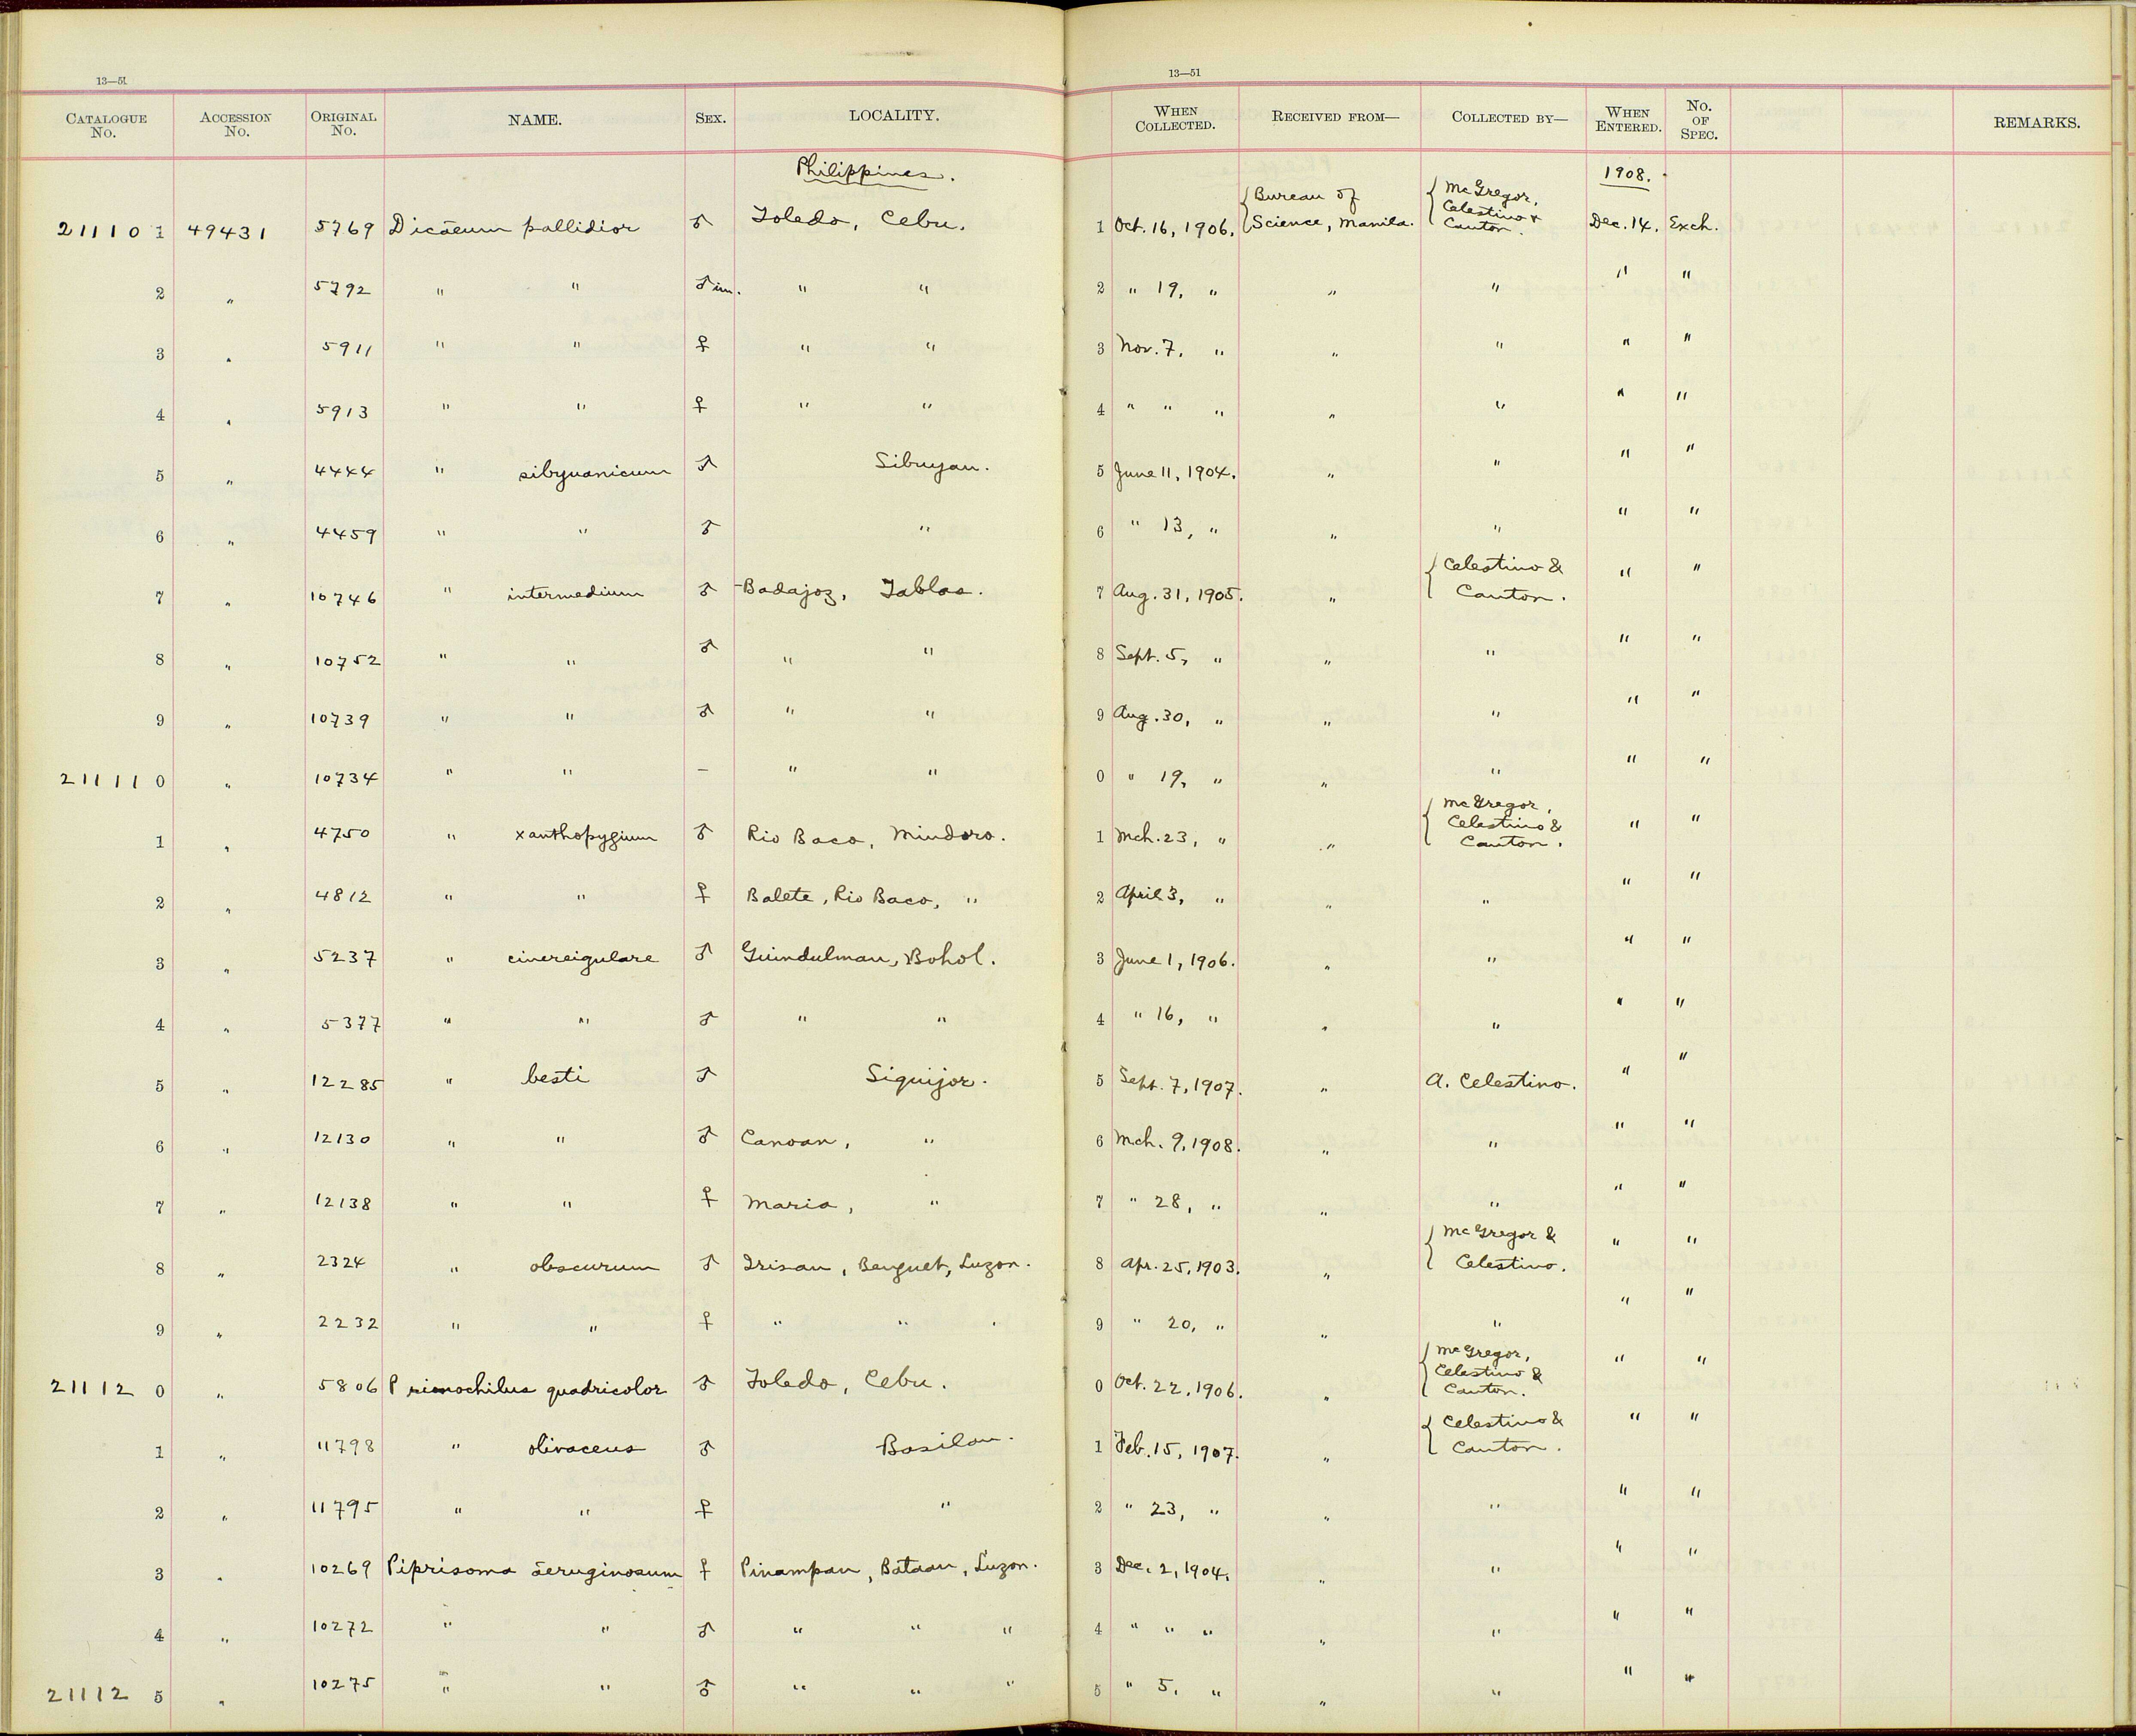 13—51
13—51
CATALOGUE No. ACCESSION No. ORIGINAL No. NAME. SEX. LOCALITY. WHEN COLLECTED. RECEIVED FROM— COLLECTED BY— WHEN ENTERED. No. OF SPEC. REMARKS.
Philippines. 1908.
211101 49431 5769 Dicaeum pallidior ♂ Toledo, Cebu. 1 Oct. 16, 1906. {Bureau of Science, Manila. {McGregor, Celestino & Canton. Dec. 14. Exch.
2 " 5792 " " ♂ im. " " 2 " 19, " " " " "
3 " 5911 " " ♀ " " 3 Nov. 7, " " " " "
4 " 5913 " " ♀ " " 4 " " " " " " "
5 " 4444 " sibyuanicum ♂ Sibuyan. 5 June 11, 1904. " " " "
6 " 4459 " " ♂ " 6 " 13, " " " " "
7 " 10746 " intermedium ♂ Badajoz, Tablas. 7 Aug. 31, 1905. " {Celestino & Canton. " "
8 " 10752 " " ♂ " " 8 Sept. 5, " " " " "
9 " 10739 " " ♂ " " 9 Aug. 30, " " " " "
211110 " 10734 " " – " " 0 " 19, " " " " "
1 " 4750 " xanthopygium ♂ Rio Baco, Mindoro. 1 Mch. 23, " " {McGregor, Celestino & Canton. " "
2 " 4812 " " ♀ Balete, Rio Baco, " 2 April 3, " " " " "
3 " 5237 " cinereigulare ♂ Guindulman, Bohol. 3 June 1, 1906. " " " "
4 " 5377 " " ♂ " " 4 " 16, " " " " "
5 " 12285 " besti ♂ Siquijor. 5 Sept. 7, 1907. " A. Celestino. " "
6 " 12130 " " ♂ Canoan, " 6 Mch. 9, 1908. " " " "
7 " 12138 " " ♀ Maria, " 7 " 28, " " " " "
8 " 2324 " obscurum ♂ Irisan, Benguet, Luzon. 8 Apr. 25, 1903. " {McGregor & Celestino. " "
9 " 2232 " " ♀ " " " 9 " 20, " " " " "
211120 " 5806 Prionochilus quadricolor ♂ Toledo, Cebu. 0 Oct. 22, 1906. " {McGregor, Celestino & Canton. " "
1 " 11798 " olivaceus ♂ Basilan. 1 Feb. 15, 1907. " {Celestino & Canton. " "
2 " 11795 " " ♀ " 2 " 23, " " " " "
3 " 10269 Piprisoma aeruginosum ♀ Pinampan, Bataan, Luzon. 3 Dec. 2, 1904. " " " "
4 " 10272 " " ♂ " " " 4 " " " " " " "
211125 " 10275 " " ♂ " " " 5 " 5, " " " " "